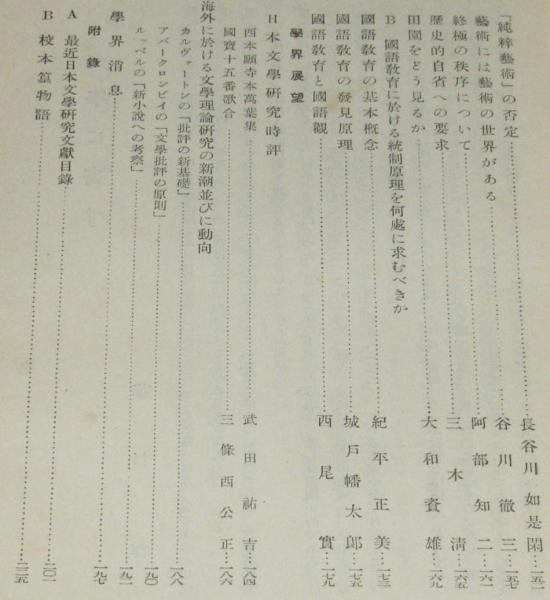 「純粹藝術」の否定……長谷川如是閑…一五一
藝術には藝術の世界がある……谷川徹三…一五七
終極の秩序について……阿部知二…一六一
歷史的自省への要求……三木淸…一六五
田園をどう見るか……大和資雄…一六九
B 國語敎育に於ける統制原理を何處に求むべきか
國語敎育の基本槪念……紀平正美…一七三
國語敎育の發見原理……城戶幡太郞…一七五
國語敎育と國語觀……西尾實…一七九
學界展望
日本文學硏究時評
西本願寺本萬葉集……武田祐吉…一八四
國寶十五番歌合……三條西公正…一八六
海外に於ける文學理論硏究の新潮並びに動向
カルヴァートンの「批評の新基礎」……一八八
アバークロンビイの「文學批評の原則」……一九〇
ルッベルの「新小說への考察」……一九二
學界消息……一九七
附錄
A 最近日本文學硏究文獻目錄……二〇一
B 校本篁物語……二三五